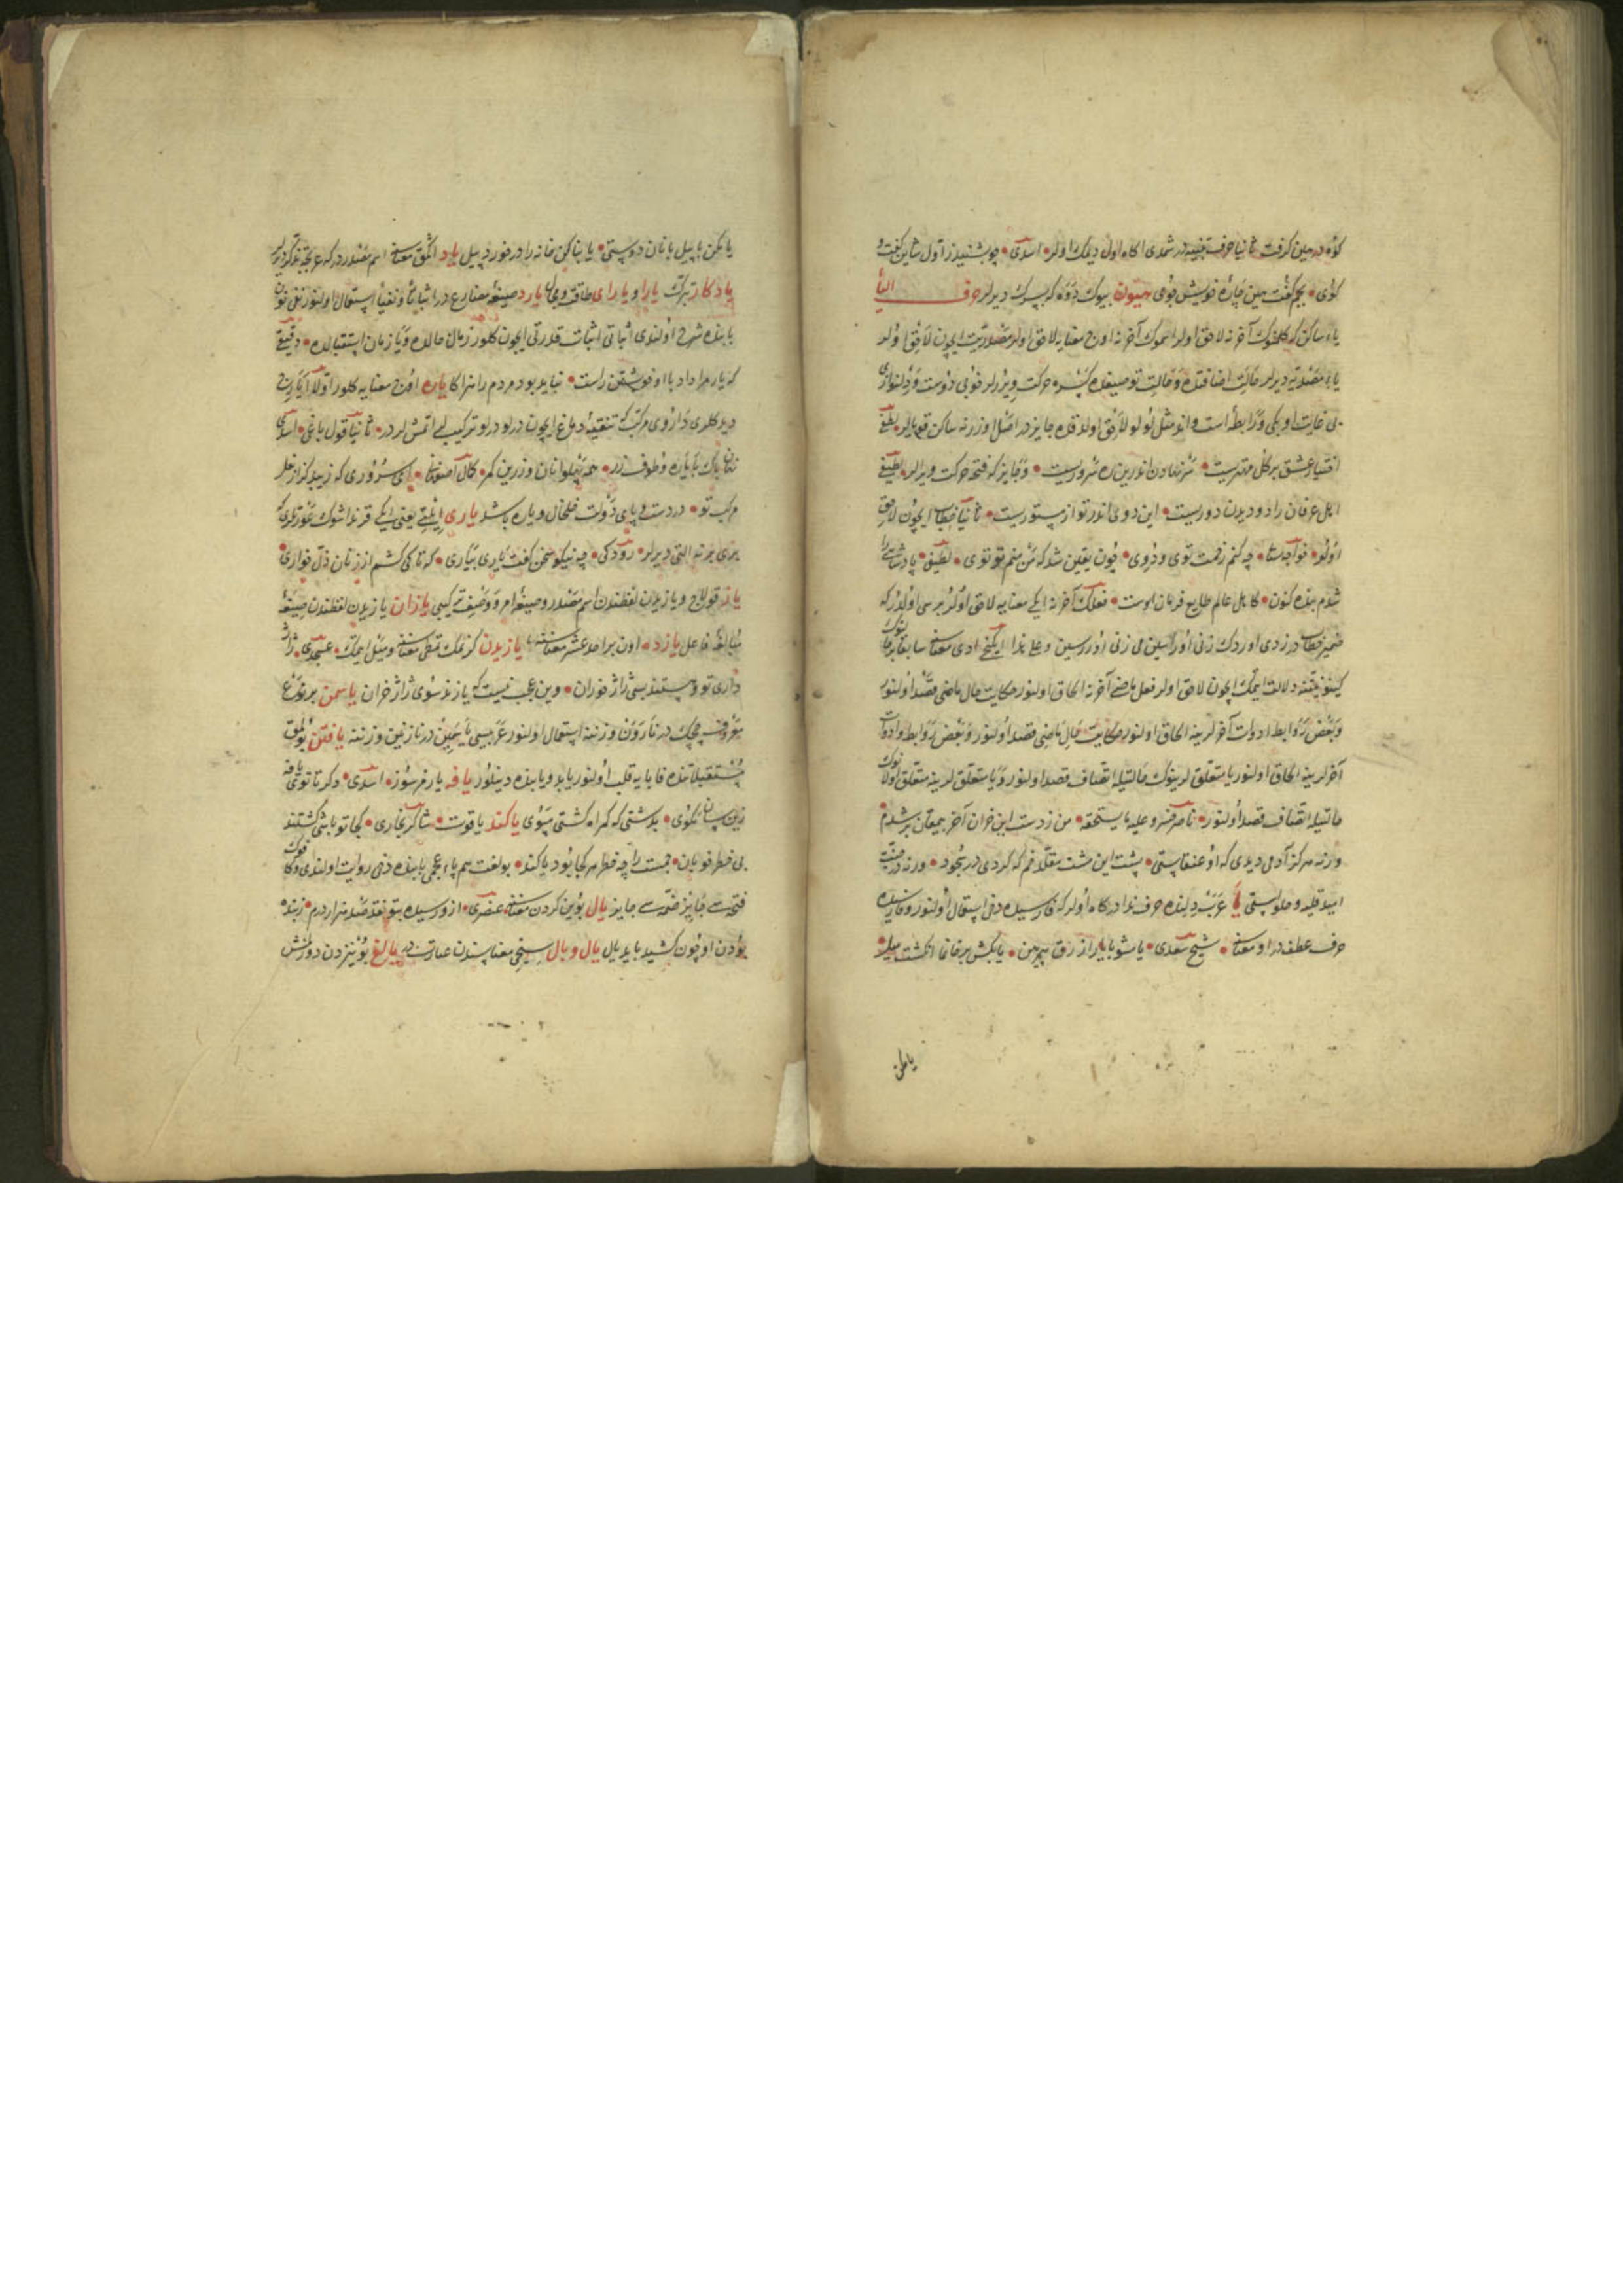 کوه در هین کرفت ثانیا حرف تنبیه در شمدی اکاه اول دیمک اولر اسدی چو بشنید ز اول شاین کفت و
کوی بجم کفت هین چاره خویش جوی هیون بیوک دوه که بیسرک دیرلر حرف الیأ
یاء ساکن که کلمنوک آخرنه لاحق اولر اسموک آخرنه اوج معنایه لاحق اولر مصدریت ایچون لاحق اولر
یاء مصدریه دیرلر حالت اضافتده و حالت توصیفده کسره حرکت ویررلر خوبی دوست و دلنوازی
بی غایت او یکی و رابطه است و اند مثل لو لو لاحق اولدقده جایز در اصل اوزرنه ساکن قویالر لطیفی
اختیار عشق بر کل مهتریست سر نهادن اندرین ره سروریست و جایز که فتحه حرکت ویرالر لطیفی
اهل عرفان را دو دیدن دوریست این دویی اندر تو از مستوریست ثانیا خطاب ایچون لاحق
اولور خواجه سنا چه کنم زحمت توی و دوی چون یقین شد که من منم تو توی لطیفی پادشاهی را
شدم بنده کنون کاهل عالم طایع فرمان اوست فعلک آخرنه ایکی معنایه لاحق اولور بریسی اولدر که
ضمیر خطاب در زدی اوردک زنی اورارسین می زنی اوررسین و علی هذا ایکنجی ادی معناسنه سابقا بونک
کینونتنه دلالت ایتمک ایچون لاحق اولر فعل ماضی آخرنه الحاق اولنور حکایت حال ماضی قصد اولنور
و بعض روابط ادوات آخرلرینه الحاق اولنور حکایت حال ماضی قصد اولنور و بعض روابط و ادوات
آخرلرینه الحاق اولنور یا متعلق لرینوک حالتیله اتصاف قصد اولنور و یا متعلق لرینه متعلق اولانوک
حالتیله اتصاف قصد اولنور ناصر خسرو علیه مایستحقه من ز دست این خران آخر بمیغان بر شدم
ورنه هرکز آدمی دیدی که او عنقاستی پشت این مشت مقلد خم که کردی در سجود ورنه در جنت
امید قلیه و حلواستی یا عرب دلنده حرف ندا در کاه اولر که فارسیده دخی استعمال اولنور و فارسیده
حرف عطف در او معناسنه شیخ سعدی یا مشو با یار ازرق پیرهن یا بکش بر خانمان انکشت نیل
یامکن
یا مکن با پیل بانان دوستی یا بنا کن خانه را در خورد پیل یاد اکمق معناسنه اسم مصدر در که عربجه تذکر دیرلر
یادکار تبرک یارا و یارای طاقت و مجال یارد صیغه مضارع در اثباتا و نفیا استعمال اولنور نفی نون
بابنده شرح اولندی اثباتی اثبات قدرتی ایچون کلور زمان حالده و یا زمان استقبالده دقیقی
که یارد داد با او خویشتن راست نباید بود مردم را هزاکا یاره اوج معنایه کلور اولا ایارج
دیدکلری داروی مرکب که تنقیه دماغ ایچون درلو درلو ترکیب لر اتمشلردر ثانیا قول باغی اسدی
بتان پاک با یاره و طوق زر همه پهلوانان و زرین کمر کمال اصفهانی ای سروری که زیبد کز از هلر
مرکب تو در دست و پای دولت خلخال و یاره باشد یاری ایلتی یعنی ایکی قرنداشوک عورتلری که
بری برنه التی دیرلر رودکی چه نیکو سخن گفت یاری بیاری که تا کی کشم از زنان ذل خواری
یاز قولاج و یازیدن لفظندن اسم مصدر و صیغه امر و وصفیت ترکیبی یازان یازیدن لفظندن صیغه
مبالغه فاعل یازده اون بر احد عشر معناسنه یازیدن کرنمک تمطی معناسنه و میل ایتمک عسجدی ژاژ
داری تو و هستند بسی ژاژ خوران وین عجب نیست که یازند سوی ژاژ خران یاسمن بر نوع
معروف چیچک در نارون وزننه استعمال اولنور عربیسی یاسمین در نازنین وزننه یافتن بولمق
مستقبلاتنده فا بایه قلب اولنور یابد و یابنده دینلور یافه یارمز سوز اسدی دکر تا توی یافه
زین سان مکوی بدشتی که کمراه کشتی مپوی یاکند یاقوت شاکر بخاری کجا تو باشی کشتند
بی خطر خوبان جمست را چه خطر هر کجا بود یاکند بو لغت هم پاء عجمی بابنده دخی روایت اولندی و کافوک
فتحه سی جایز ضمه سی جایز یال بوین کردن معناسنه عنصری از و رسیده بتو نقد صد هزار درم ز بنده
بودن او چون کشید باید یال یال و بال سیجی معناسندن عبارت در یالغ بوینزدن دوزلمش